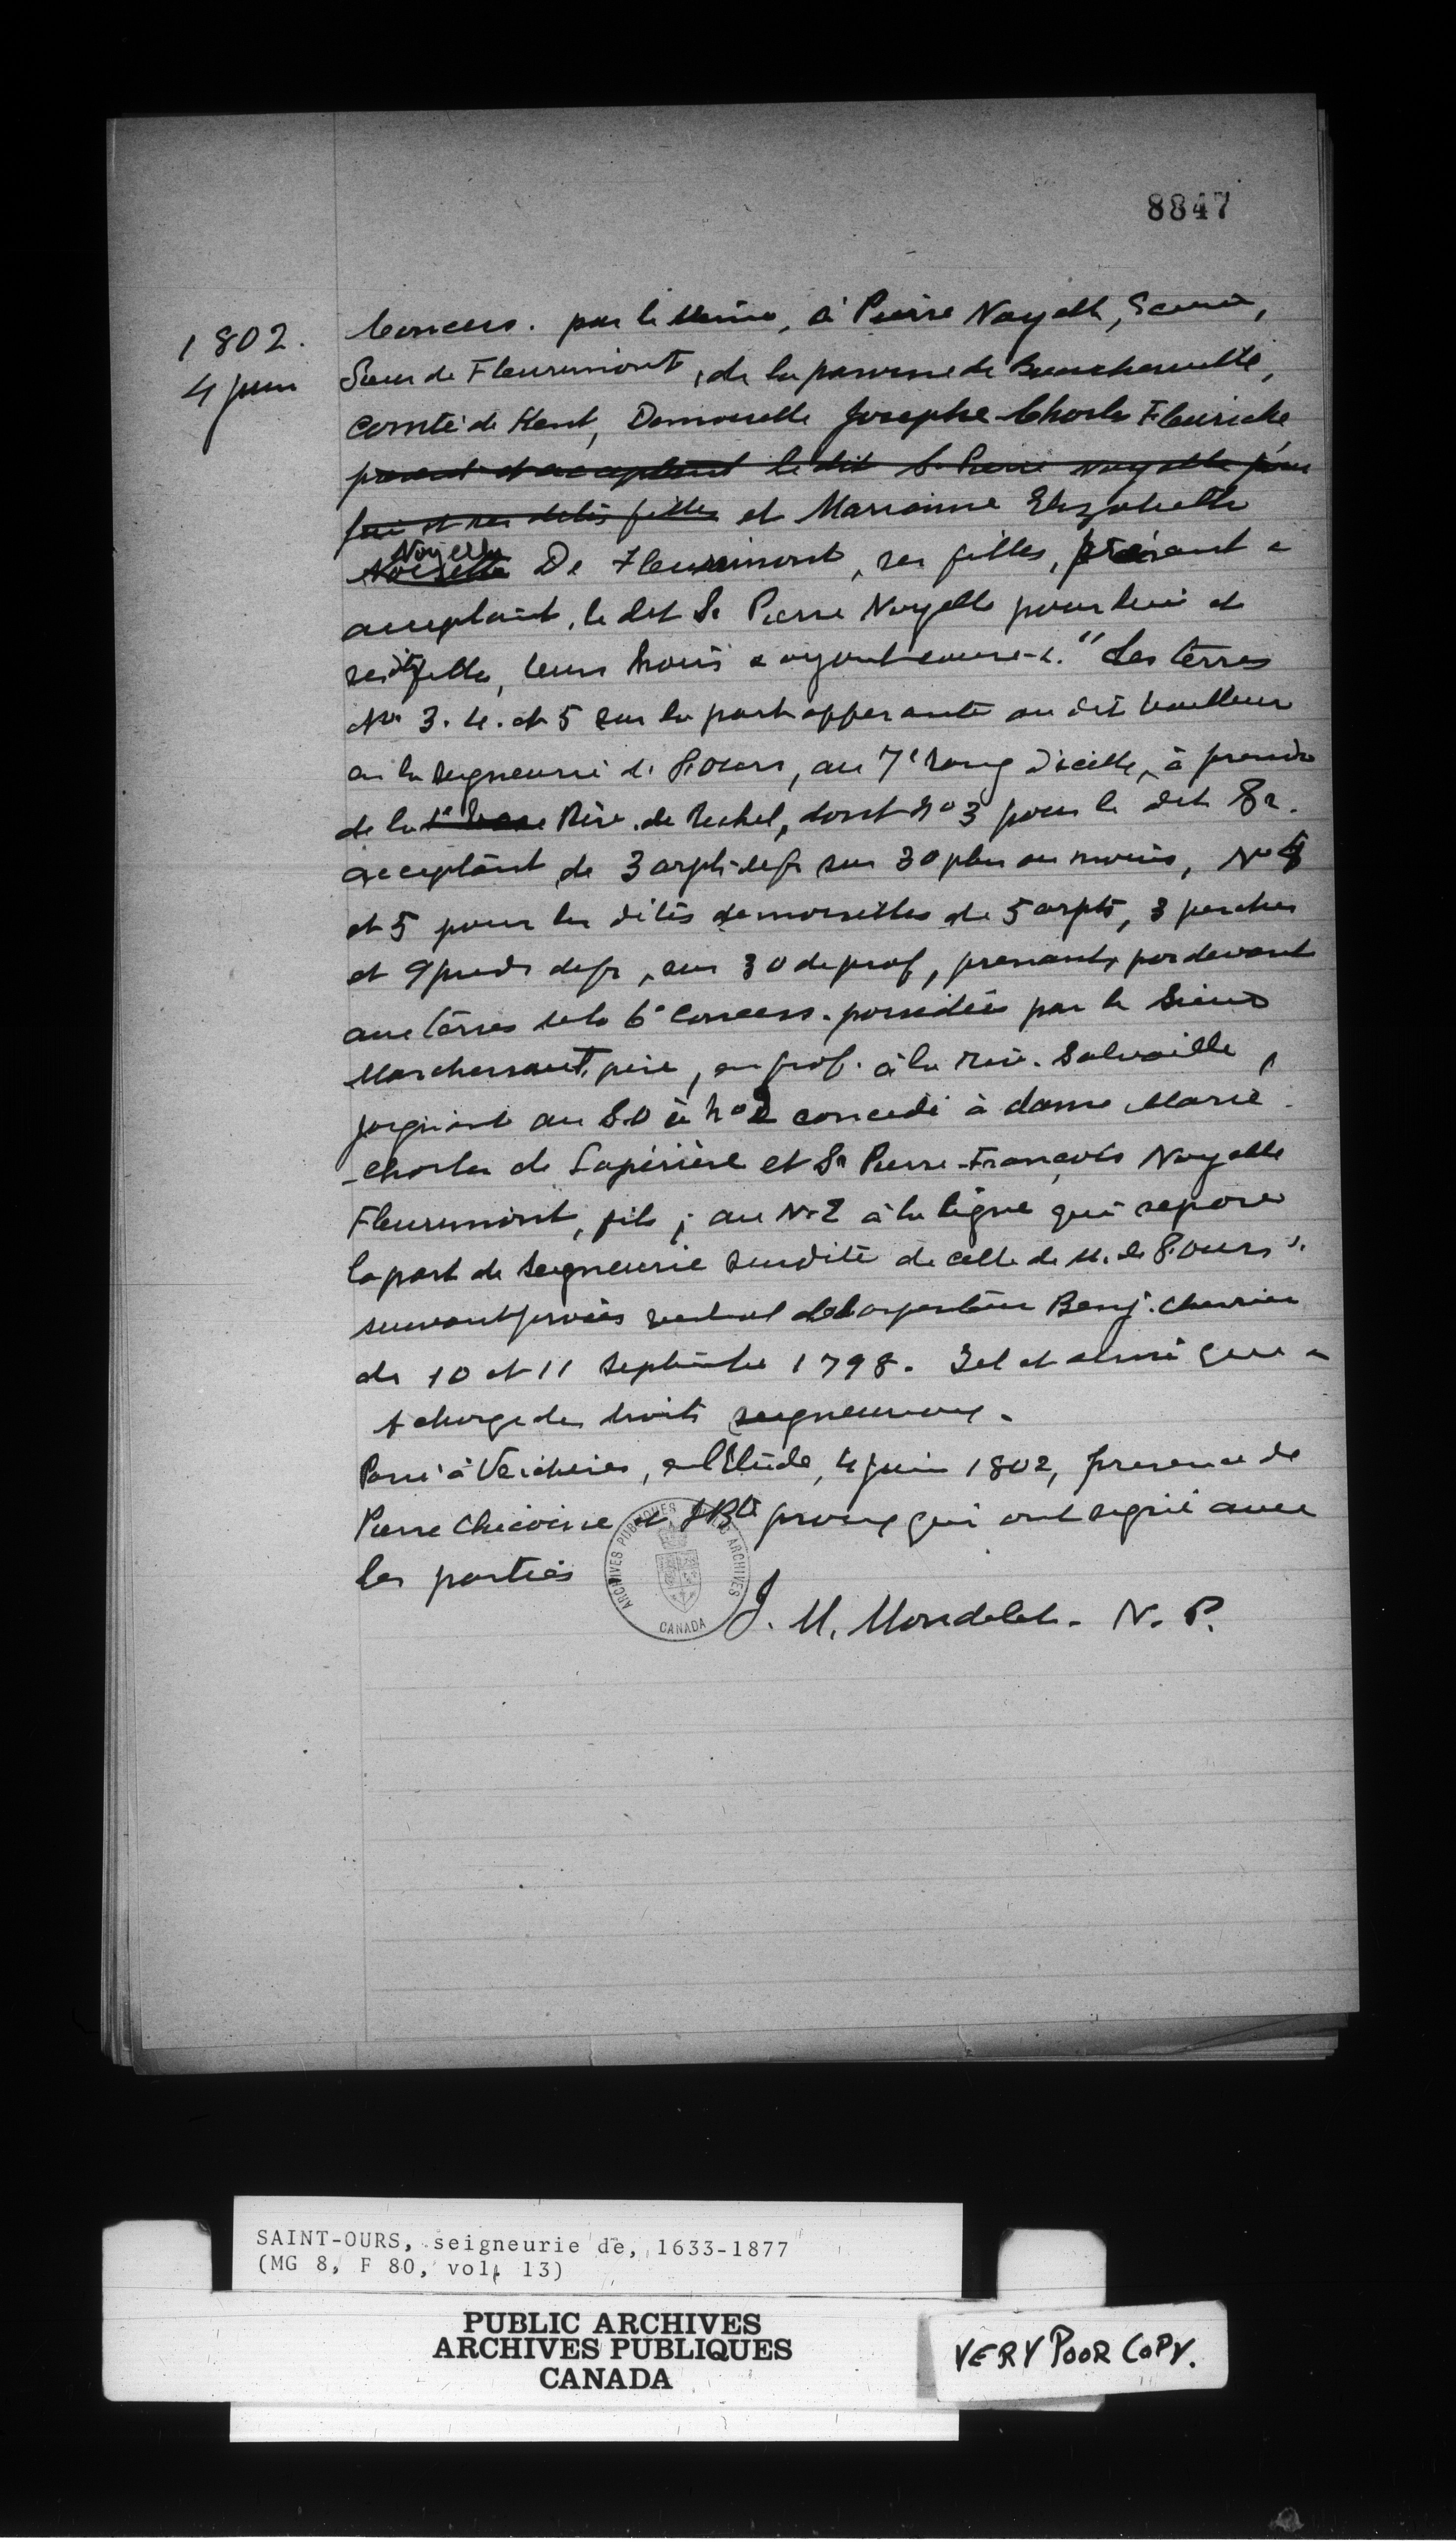 8847
1802.
4 juin
Concess. par le même, à Pierre Noyelle, Ecuier,
Sieur de Fleurimont, de la paroisse de Boucherville,
comté de Kent, Demoiselle Josephe-Charles Fleuriche
présent et acceptant le dit Sr Pierre Noyelle pour
lui et ses dites filles et Marianne Elizabeth
Noyelle
De Fleurimont, ses filles, présent &
acceptant, le dit Sr Pierre Noyelle pour lui et
ses dtes filles, leurs hoirs & ayant cause. "Les terres
Nos 3. 4. et 5 sur la part afferante au dit bailleur
en la seigneurie de St.Ours, au 7e rang d'icelle, à prendre
de la Riv. de Michel, dont No 3 pour le dit Sr.
acceptant de 3 arpts de fr sur 30 plus ou moins, No 4
et 5 pour les dites demoiselles de 5 arpts, 3 perches
et 9 pieds de fr, sur 30 de prof, prenant par devant
aux terres de la 6e Concess. possédées par le Sieur
Marchessault, père, en prof. à la riv. Salvaille,
joignant au S.O à No 2 concédé à dame Marie
-Charles de Lapérière et Sr Pierre-François Noyelle
Fleurimont, fils; au N.E à la ligne qui sépare
la part de Seigneurie susdite de celle de M. de St.Ours".
suivant procès verbal de l'arpenteur Benj. Cherrier
de 10 et 11 septembre 1798. Tel et ainsi que &
& charge des droits seigneuriaux.
Passé à Verchères, en l'Etude, 4 juin 1802, presence de
Pierre Chicoine et J Bte proux qui ont signé avec
les parties
J. M. Mondelet. N. P.
ARCHIVES PUBLIQUES PUBLIC ARCHIVES
CANADA
SAINT-OURS, seigneurie de, 1633-1877
(MG 8, F 80, vol. 13)
PUBLIC ARCHIVES
ARCHIVES PUBLIQUES
CANADA
VERY POOR COPY.